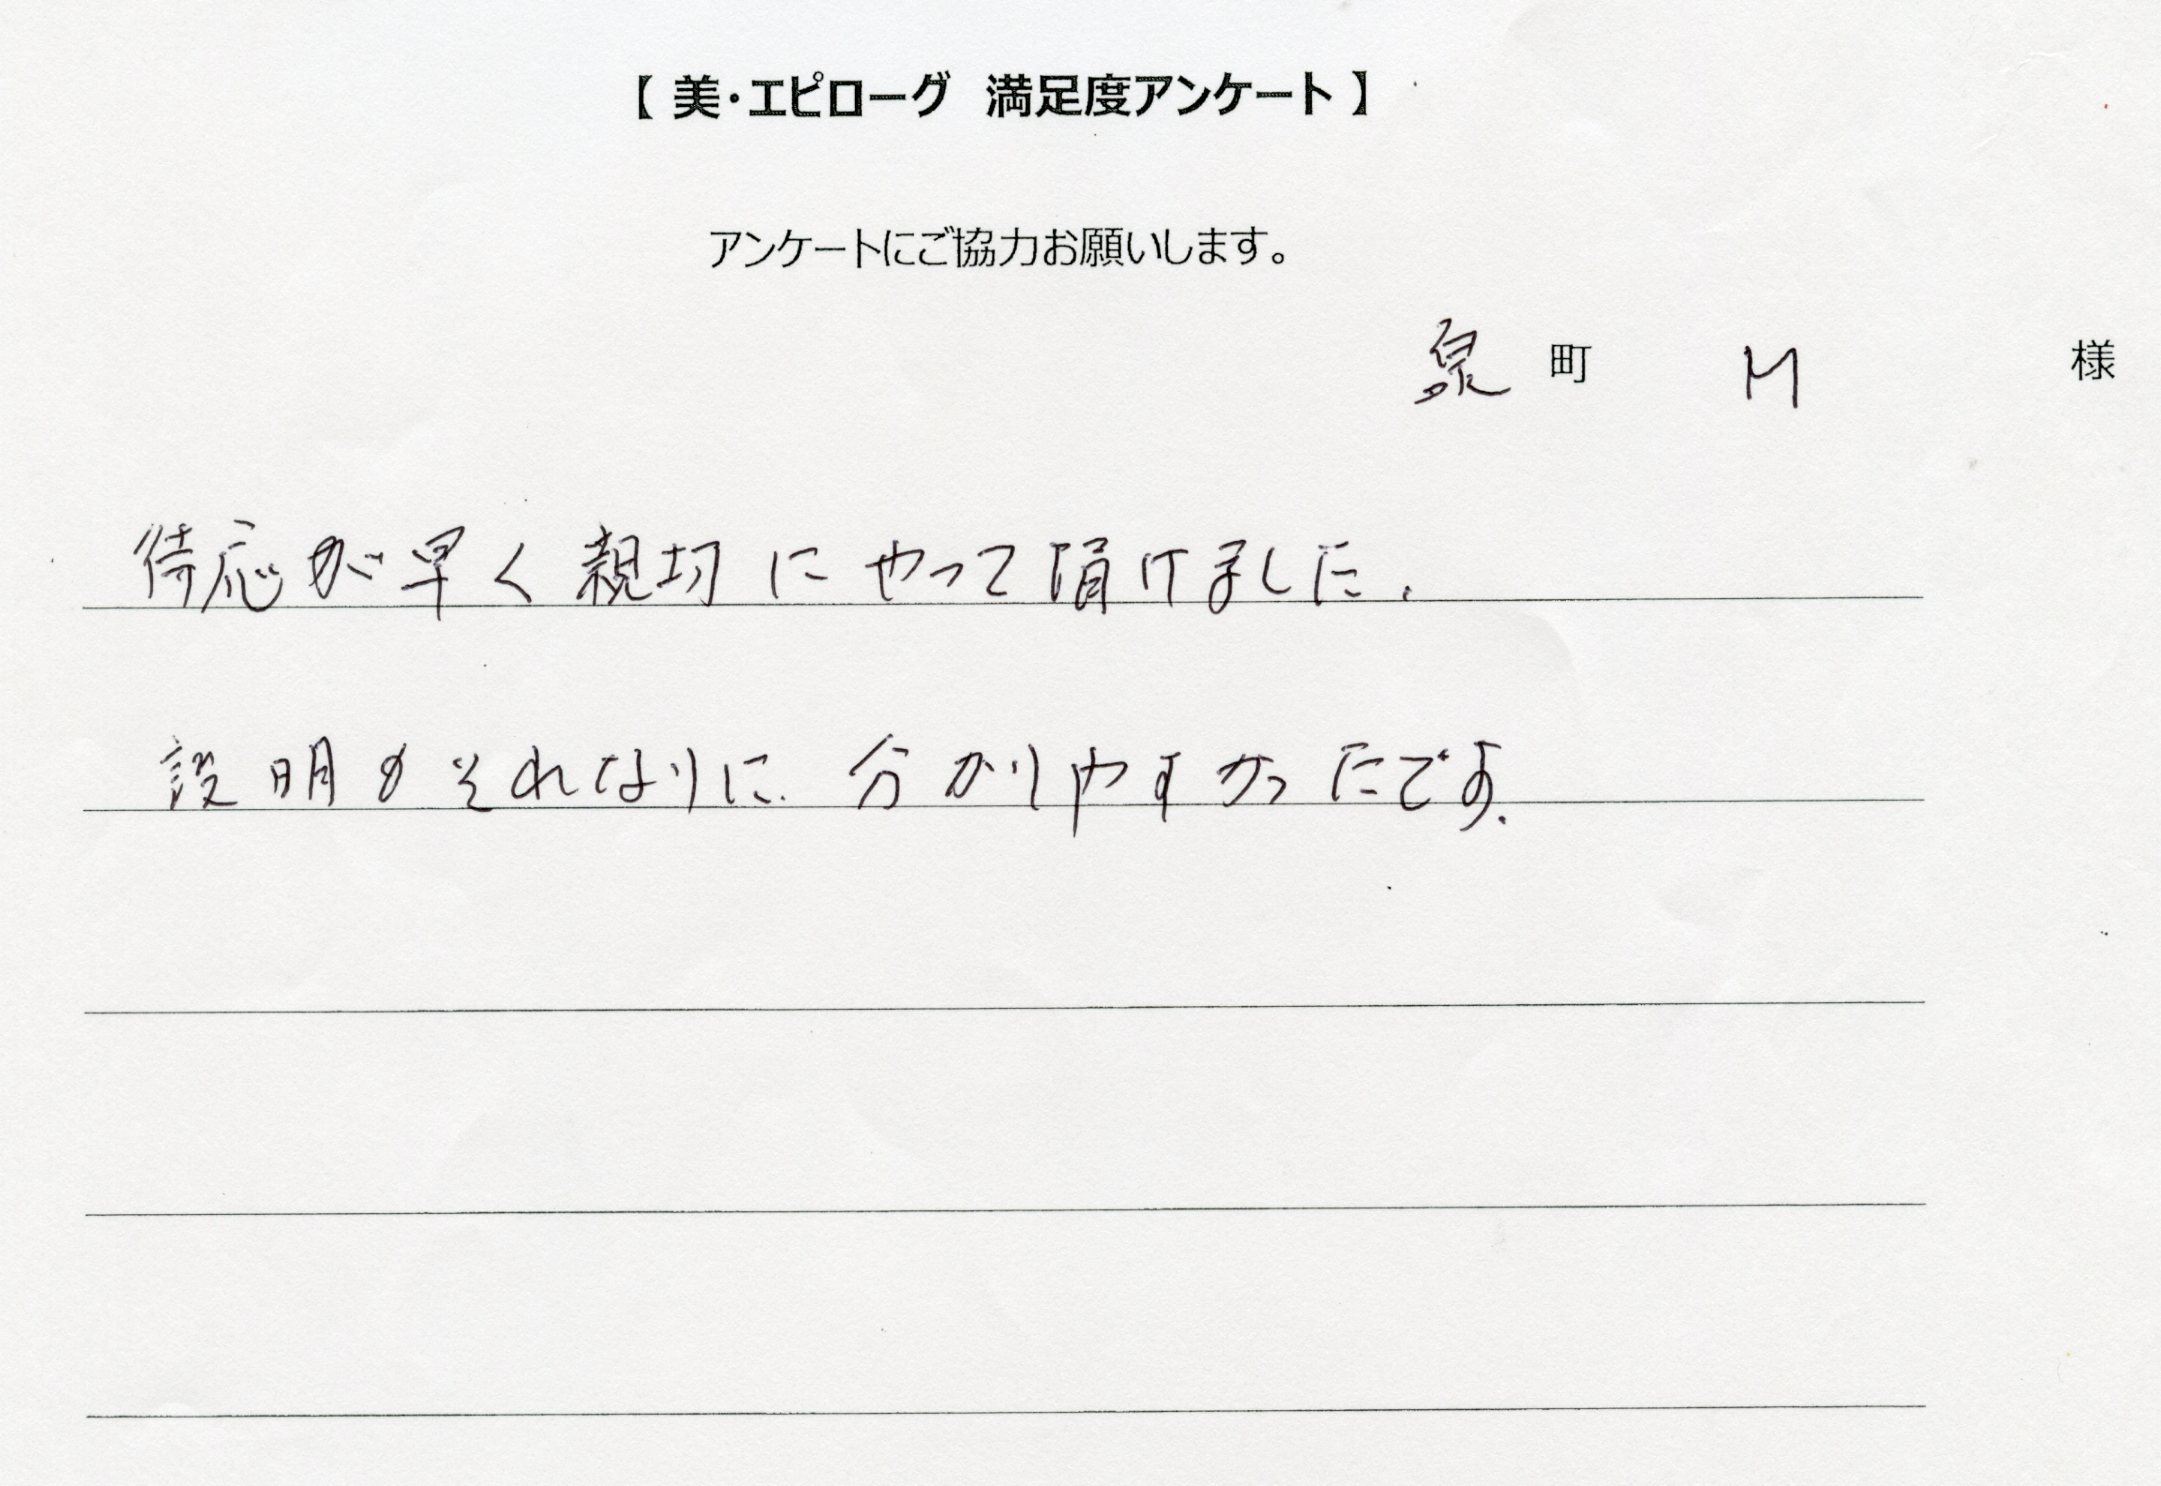 【 美・エピローグ 満足度アンケート 】
アンケートにご協力お願いします。
泉 町 M 様
待応が早く親切にやって頂けました.
説明もそれなりに分かりやすかったです.